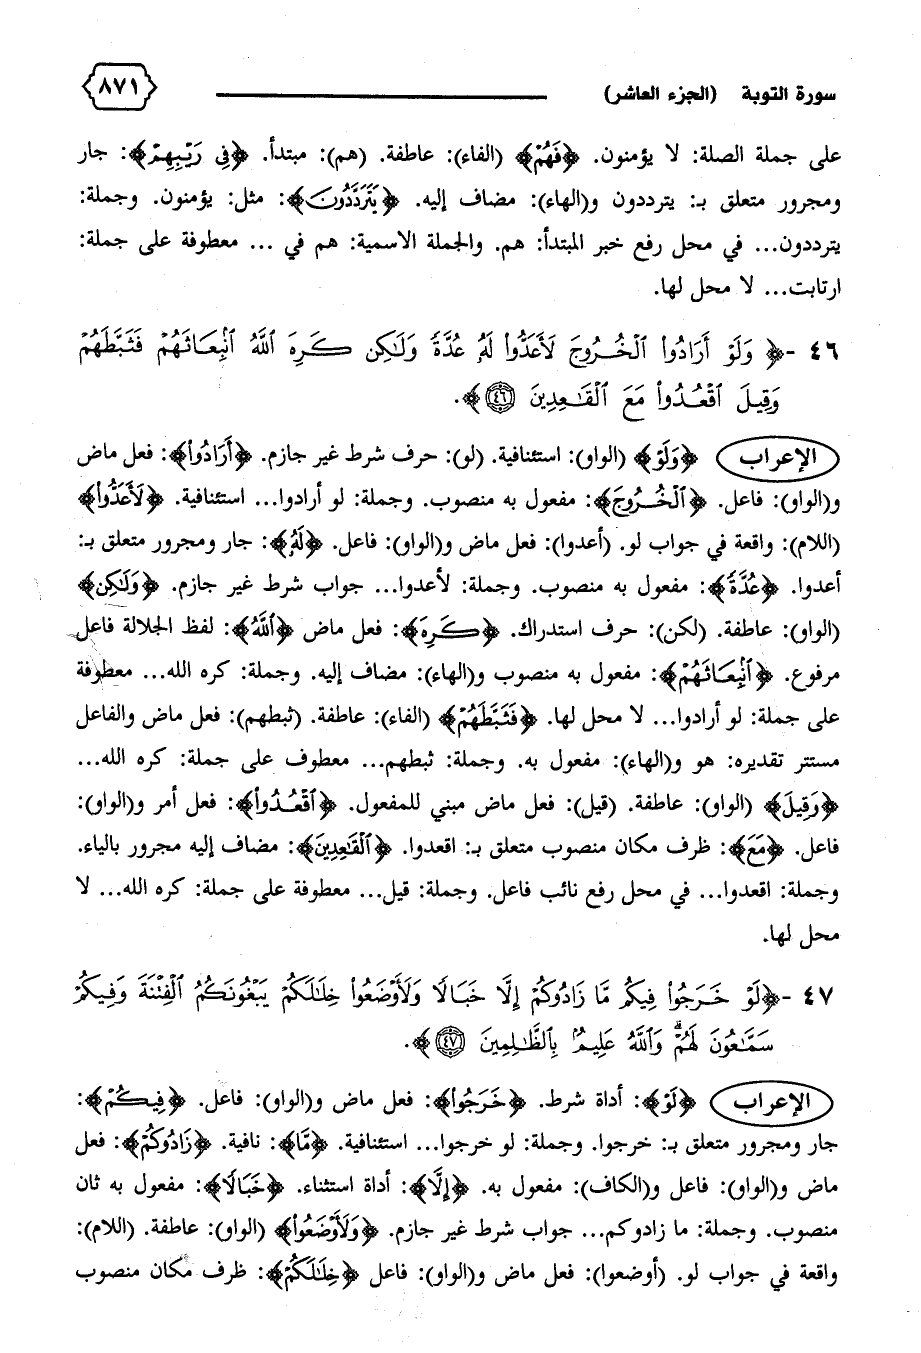 سورة التوبة (الجزء العاشر) ٨٧١
على جملة الصلة: لا يؤمنون. ﴿فَهُمْ﴾ (الفاء): عاطفة. (هم): مبتدأ. ﴿فِي رَيْبِهِمْ﴾: جار
ومجرور متعلق بـ: يترددون و(الهاء): مضاف إليه. ﴿يَتَرَدَّدُونَ﴾: مثل: يؤمنون. وجملة:
يترددون... في محل رفع خبر المبتدأ: هم. والجملة الاسمية: هم في ... معطوفة على جملة:
ارتابت... لا محل لها.
٤٦ -﴿ وَلَوْ أَرَادُواْ ٱلْخُرُوجَ لَأَعَدُّواْ لَهُۥ عُدَّةً وَلَـٰكِن كَرِهَ ٱللَّهُ ٱنۢبِعَاثَهُمْ فَثَبَّطَهُمْ
وَقِيلَ ٱقْعُدُواْ مَعَ ٱلْقَـٰعِدِينَ ٤٦﴾.
الإعراب ﴿وَلَوْ﴾ (الواو): استئنافية. (لو): حرف شرط غير جازم. ﴿أَرَادُواْ﴾: فعل ماض
و(الواو): فاعل. ﴿ٱلْخُرُوجَ﴾: مفعول به منصوب. وجملة: لو أرادوا... استئنافية. ﴿لَأَعَدُّواْ﴾
(اللام): واقعة في جواب لو. (أعدوا): فعل ماض و(الواو): فاعل. ﴿لَهُۥ﴾: جار ومجرور متعلق بـ:
أعدوا. ﴿عُدَّةً﴾: مفعول به منصوب. وجملة: لأعدوا... جواب شرط غير جازم. ﴿وَلَـٰكِن﴾
(الواو): عاطفة. (لكن): حرف استدراك. ﴿كَرِهَ﴾: فعل ماض ﴿ٱللَّهُ﴾: لفظ الجلالة فاعل
مرفوع. ﴿ٱنۢبِعَاثَهُمْ﴾: مفعول به منصوب و(الهاء): مضاف إليه. وجملة: كره الله... معطوفة
على جملة: لو أرادوا... لا محل لها. ﴿فَثَبَّطَهُمْ﴾ (الفاء): عاطفة. (ثبطهم): فعل ماض والفاعل
مستتر تقديره: هو و(الهاء): مفعول به. وجملة: ثبطهم... معطوف على جملة: كره الله...
﴿وَقِيلَ﴾ (الواو): عاطفة. (قيل): فعل ماض مبني للمفعول. ﴿ٱقْعُدُواْ﴾: فعل أمر و(الواو):
فاعل. ﴿مَعَ﴾: ظرف مكان منصوب متعلق بـ: اقعدوا. ﴿ٱلْقَـٰعِدِينَ﴾: مضاف إليه مجرور بالياء.
وجملة: اقعدوا... في محل رفع نائب فاعل. وجملة: قيل... معطوفة على جملة: كره الله... لا
محل لها.
٤٧ -﴿لَوْ خَرَجُواْ فِيكُم مَّا زَادُوكُمْ إِلَّا خَبَالًا وَلَأَوْضَعُواْ خِلَـٰلَكُمْ يَبْغُونَكُمُ ٱلْفِتْنَةَ وَفِيكُمْ
سَمَّـٰعُونَ لَهُمْۗ وَٱللَّهُ عَلِيمٌۢ بِٱلظَّـٰلِمِينَ ٤٧﴾.
الإعراب ﴿لَوْ﴾: أداة شرط. ﴿خَرَجُواْ﴾: فعل ماض و(الواو): فاعل. ﴿فِيكُمْ﴾:
جار ومجرور متعلق بـ: خرجوا. وجملة: لو خرجوا... استئنافية. ﴿مَّا﴾: نافية. ﴿زَادُوكُمْ﴾: فعل
ماض و(الواو): فاعل و(الكاف): مفعول به. ﴿إِلَّا﴾: أداة استثناء. ﴿خَبَالًا﴾: مفعول به ثان
منصوب. وجملة: ما زادوكم... جواب شرط غير جازم. ﴿وَلَأَوْضَعُواْ﴾ (الواو): عاطفة. (اللام):
واقعة في جواب لو. (أوضعوا): فعل ماض و(الواو): فاعل ﴿خِلَـٰلَكُمْ﴾: ظرف مكان منصوب